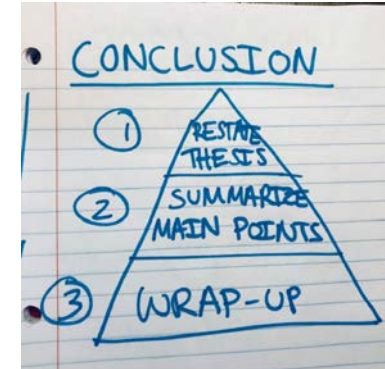 CONCLUSION
1 RESTATE
THESIS
2 SUMMARIZE
MAIN POINTS
3 WRAP-UP